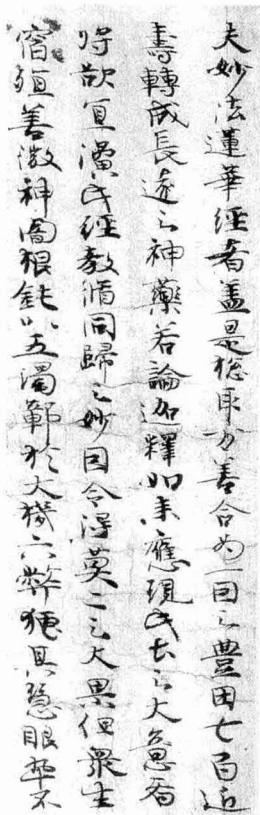 夫妙法蓮華經者蓋是惣取万善合為一因之豊田七百近
壽轉成長遠之神藥若論迦釋如来應現此土之大意者
将欲宣演此經教脩同歸之妙因令得莫二之大果但衆生
宿殖善微神闇根鈍以五濁鄣於大機六弊掩其慧眼卒不